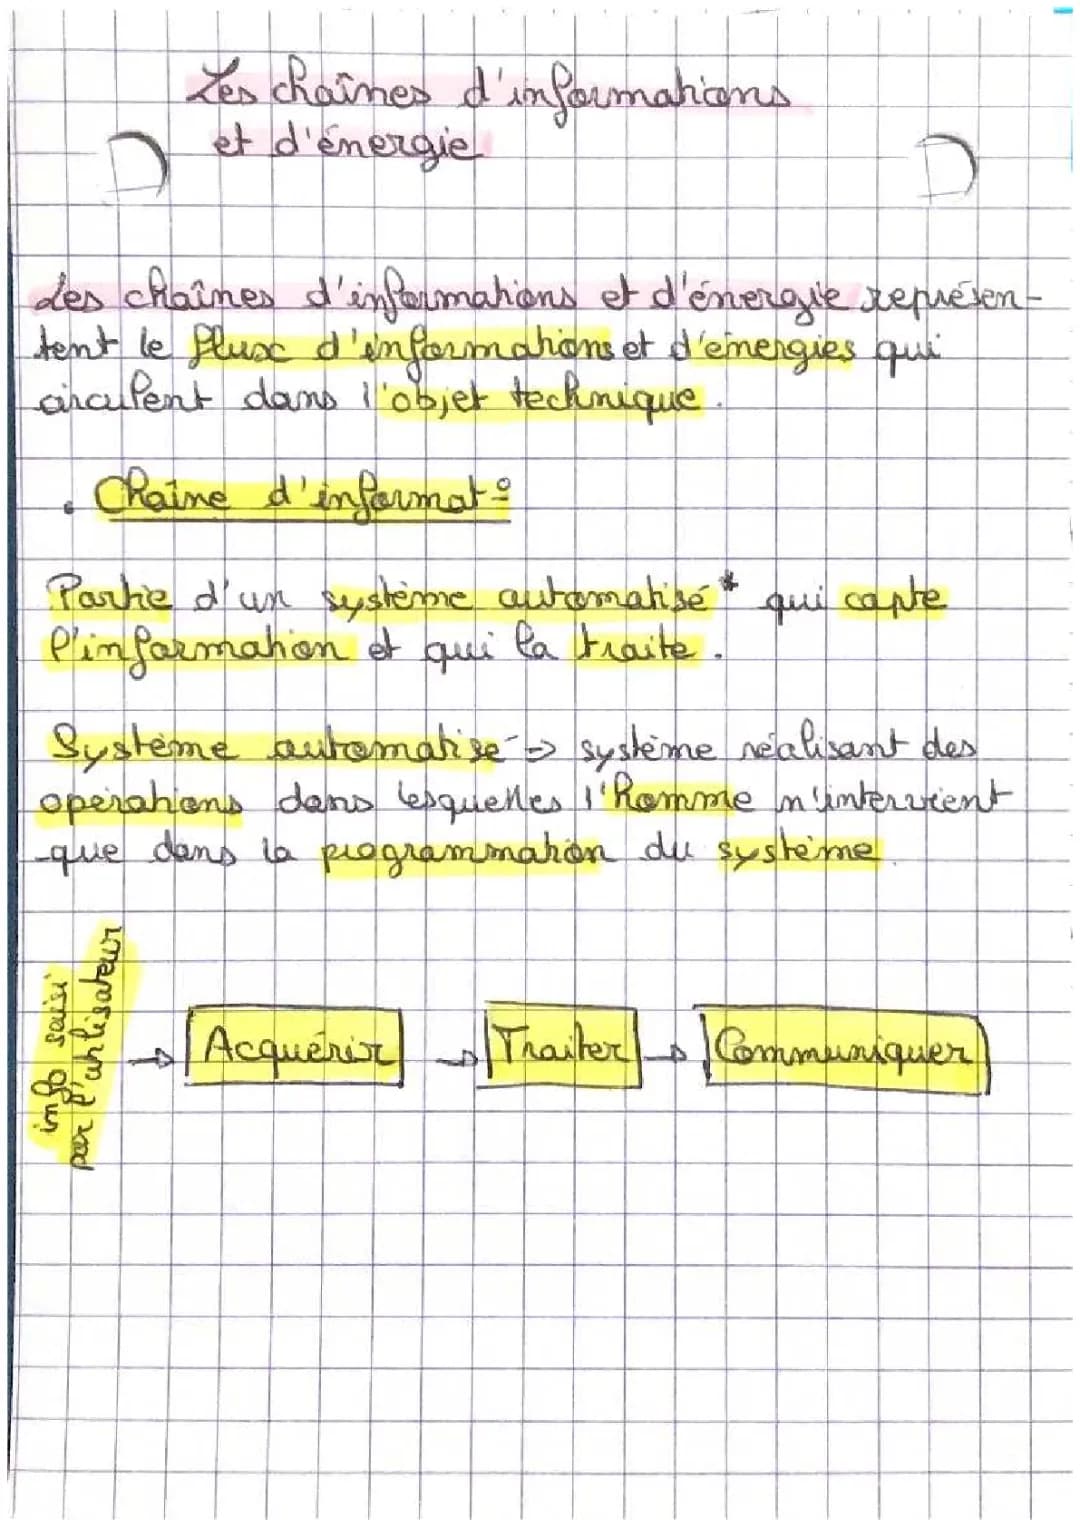 Les chaînes d'informations
et d'énergie
Les chaînes d'informations et d'énergie représen-
tent le flux d'informations et d'énergies qui
circulent dans l'objet technique.
. Chaîne d'informat°
Partie d'un système automatisé* qui capte
l'information et qui la traite.
Système automatisé → système réalisant des
opérations dans lesquelles l'Homme n'intervient
que dans la programmation du système.
info saisi
par l'utilisateur
→ Acquérir → Traiter → Communiquer